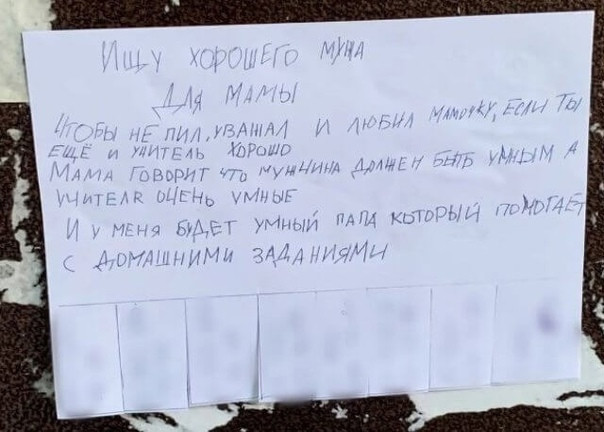 Ищу хорошего мужа
для мамы
чтобы не пил, уважал и любил мамочку, если ты
ещё и учитель хорошо
мама говорит что мужчина должен быть умным а
учителя очень умные
и у меня будет умный папа который помогает
с домашними заданиями